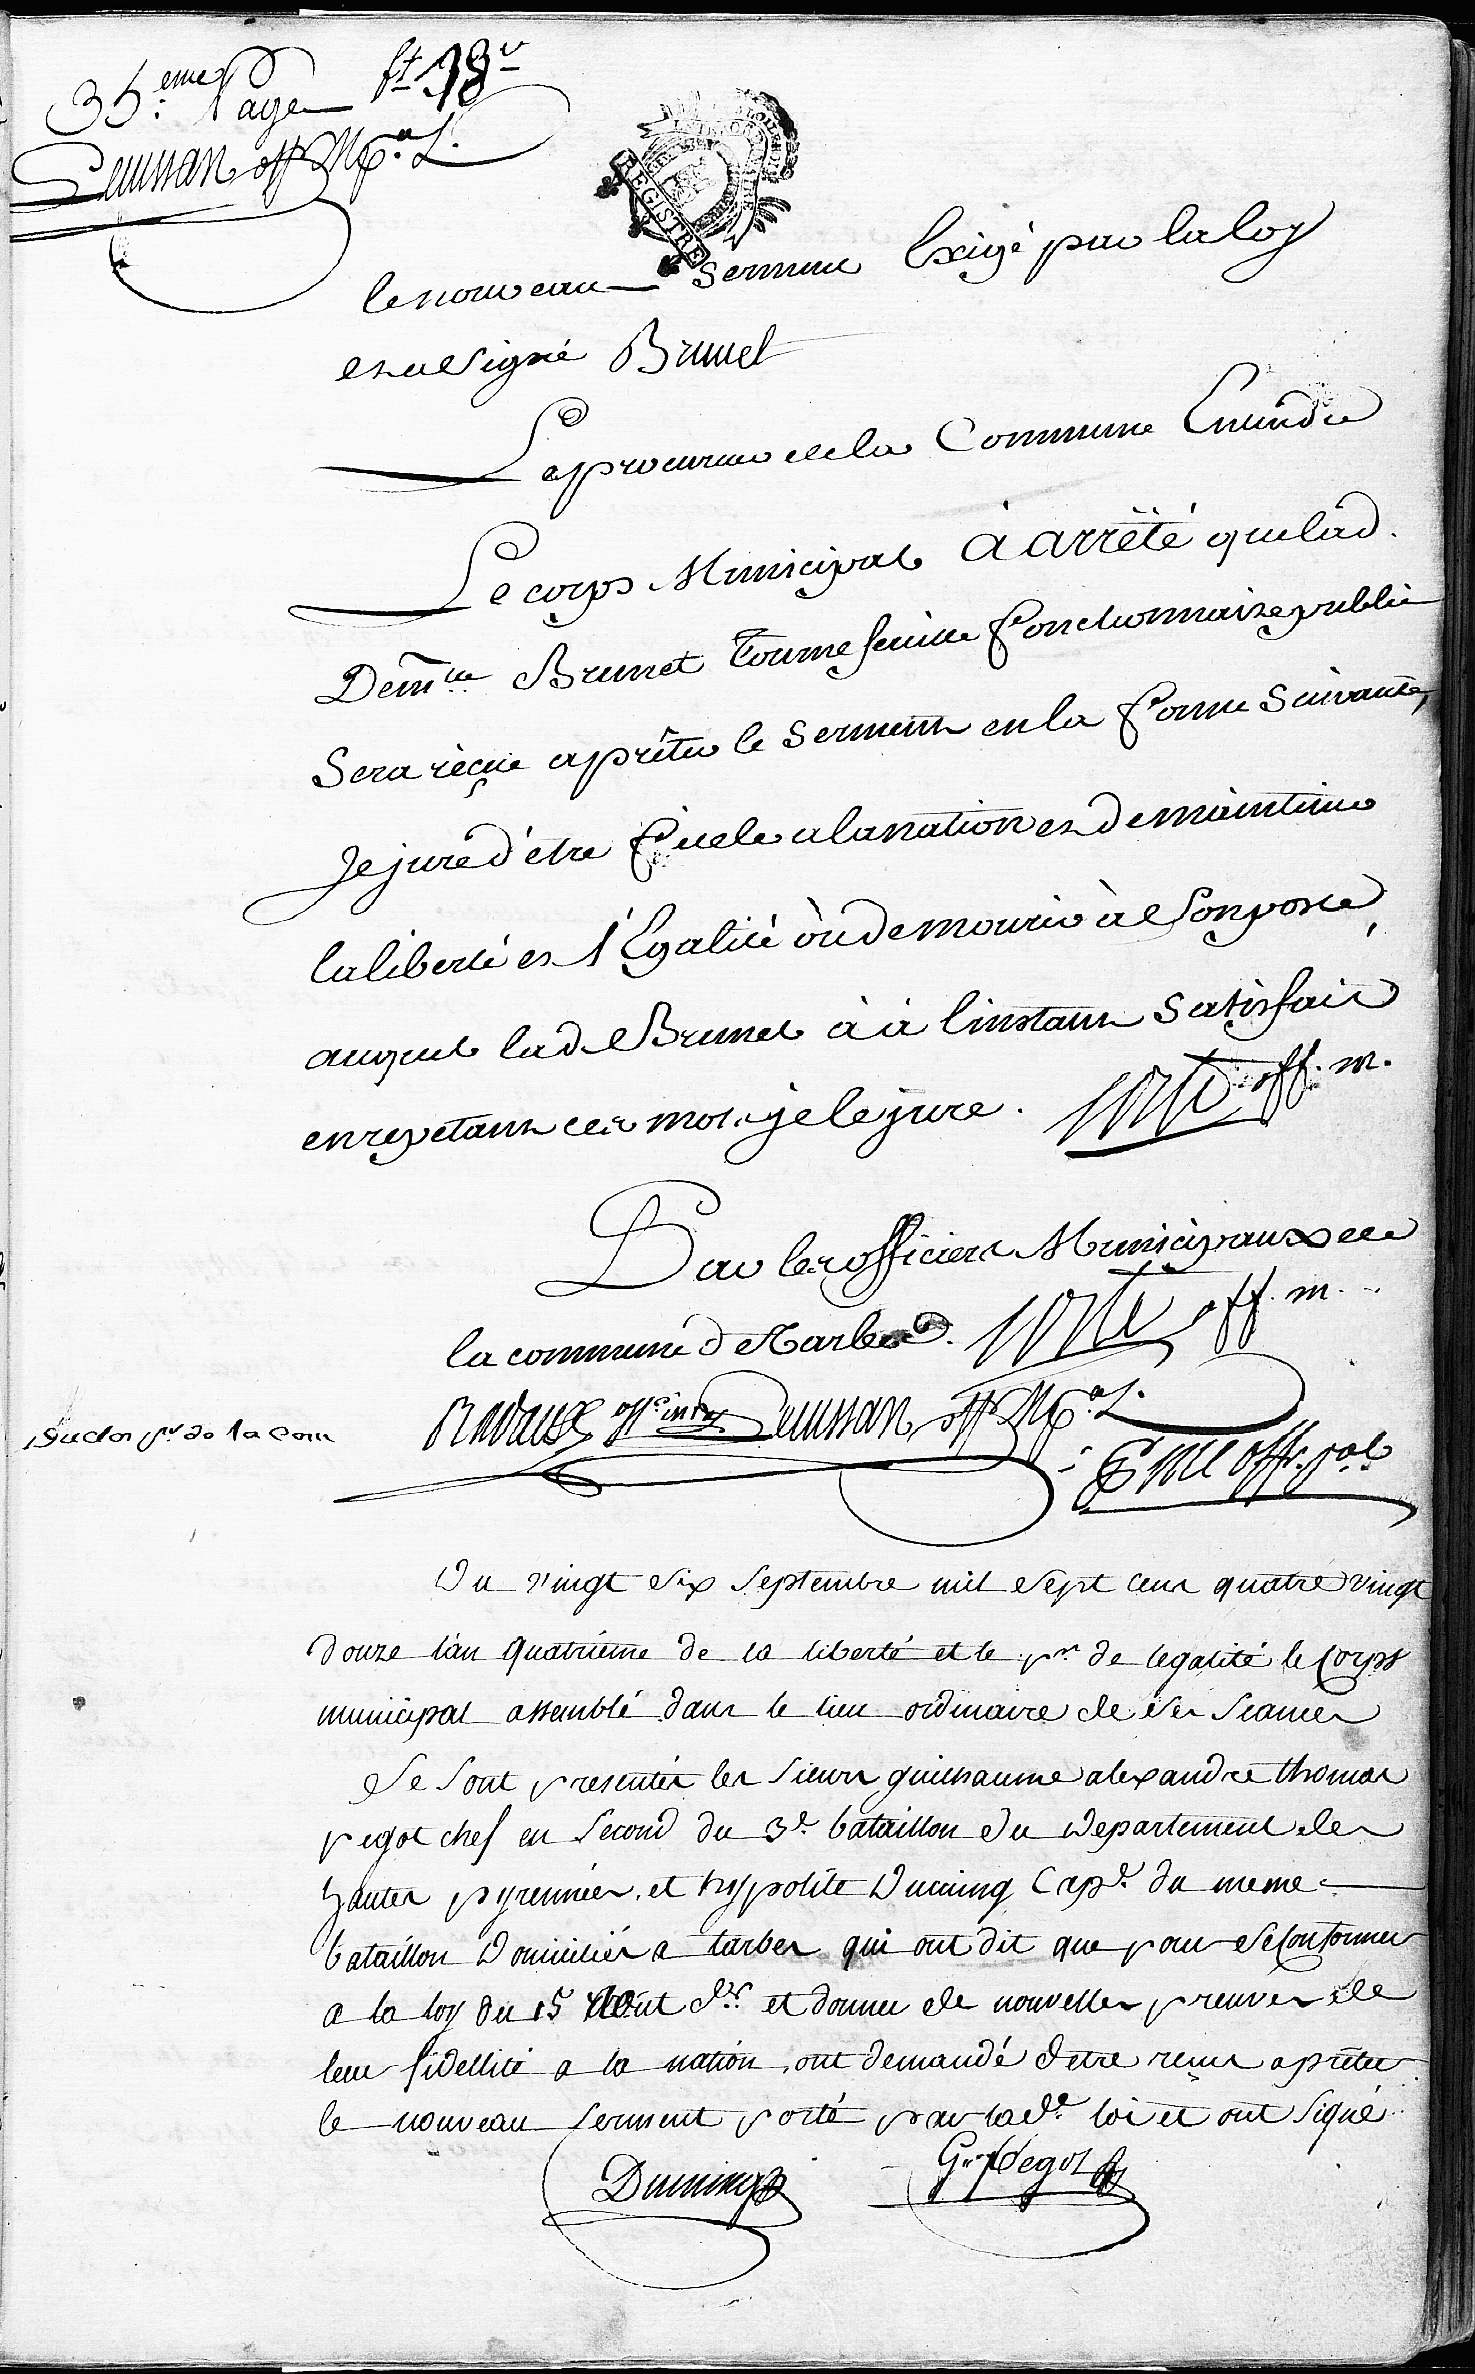 35.eme Page ft 18v
off Mp.al
REGISTRE
le nouveau serment Exigé par la loy
et a signé Brunet
Le procureur de la Commune Entendu
Le corps Municipal à arrêté que lad.
Demlle Brunet Tournefeuille fonctionnaire public
Sera réçue a prêter le serment en la forme Suivante,
Je jure d'être fidele a la nation et de maintenir
la liberté et l'Egalité òu de mourir à Son poste,
auquel lad. Brunet à à l'instant Satisfait
en repetant ces mots je le jure. off. m.
Par les officiers Municipaux de
la commune de Tarbes. off. m.
off Mp.al
offr. pal
pr de la Com
Du vingt six Septembre mil Sept cent quatre vingt
douze l'an quatrieme de la liberté et le pr de legalité le Corps
municipal assemblé dans le lieu ordinaire de ses Seances
Se Sont presentés les Sieurs guillaume alexandre thomas
pegot chef en Second du 3e bataillon du Departement des
hautes pyrennées, et hypolite Duming Cape du meme
bataillon Domiciliés a tarbes qui ont dit que pour se Conformer
a la loy du 15 Aout der et donner de nouvelles preuves de
leur fidellité a la nation, ont demandé detre reçus a prêter
le nouveau serment porté par lade loi et ont Signé
Duming G. pegot